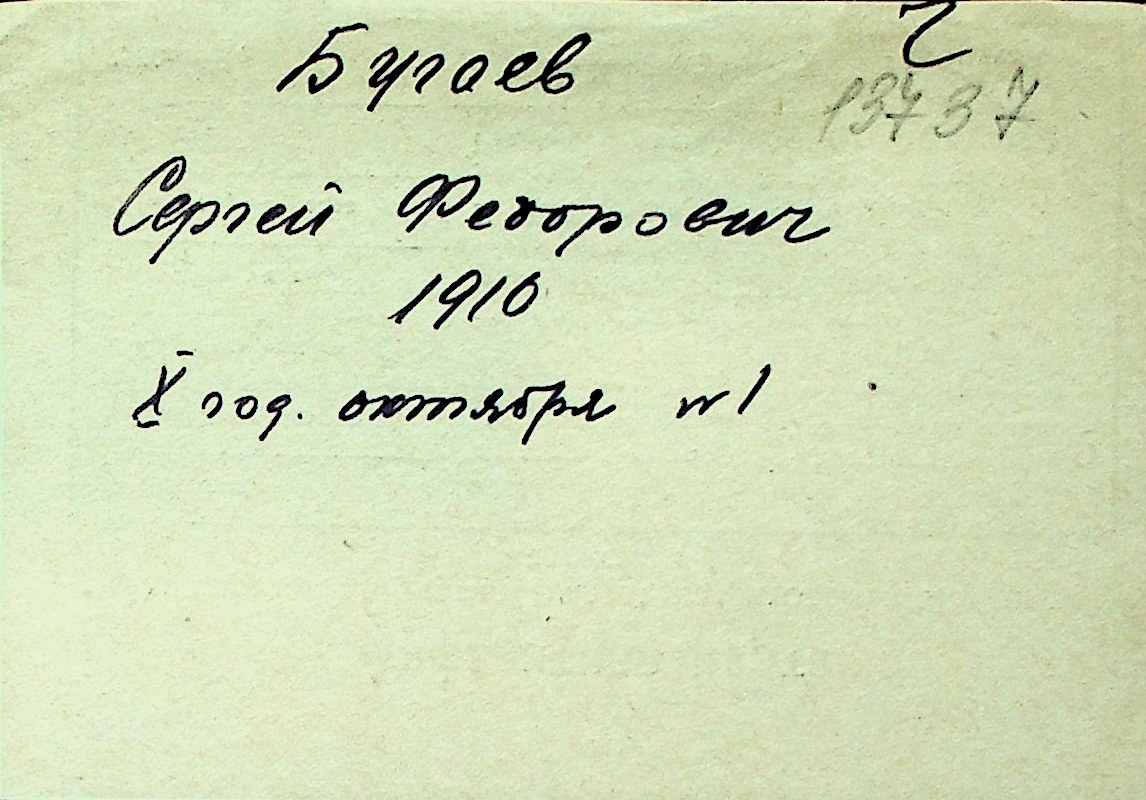 Ч
Бугаев
13737
Сергей Федорович
1910
X год. октября №1